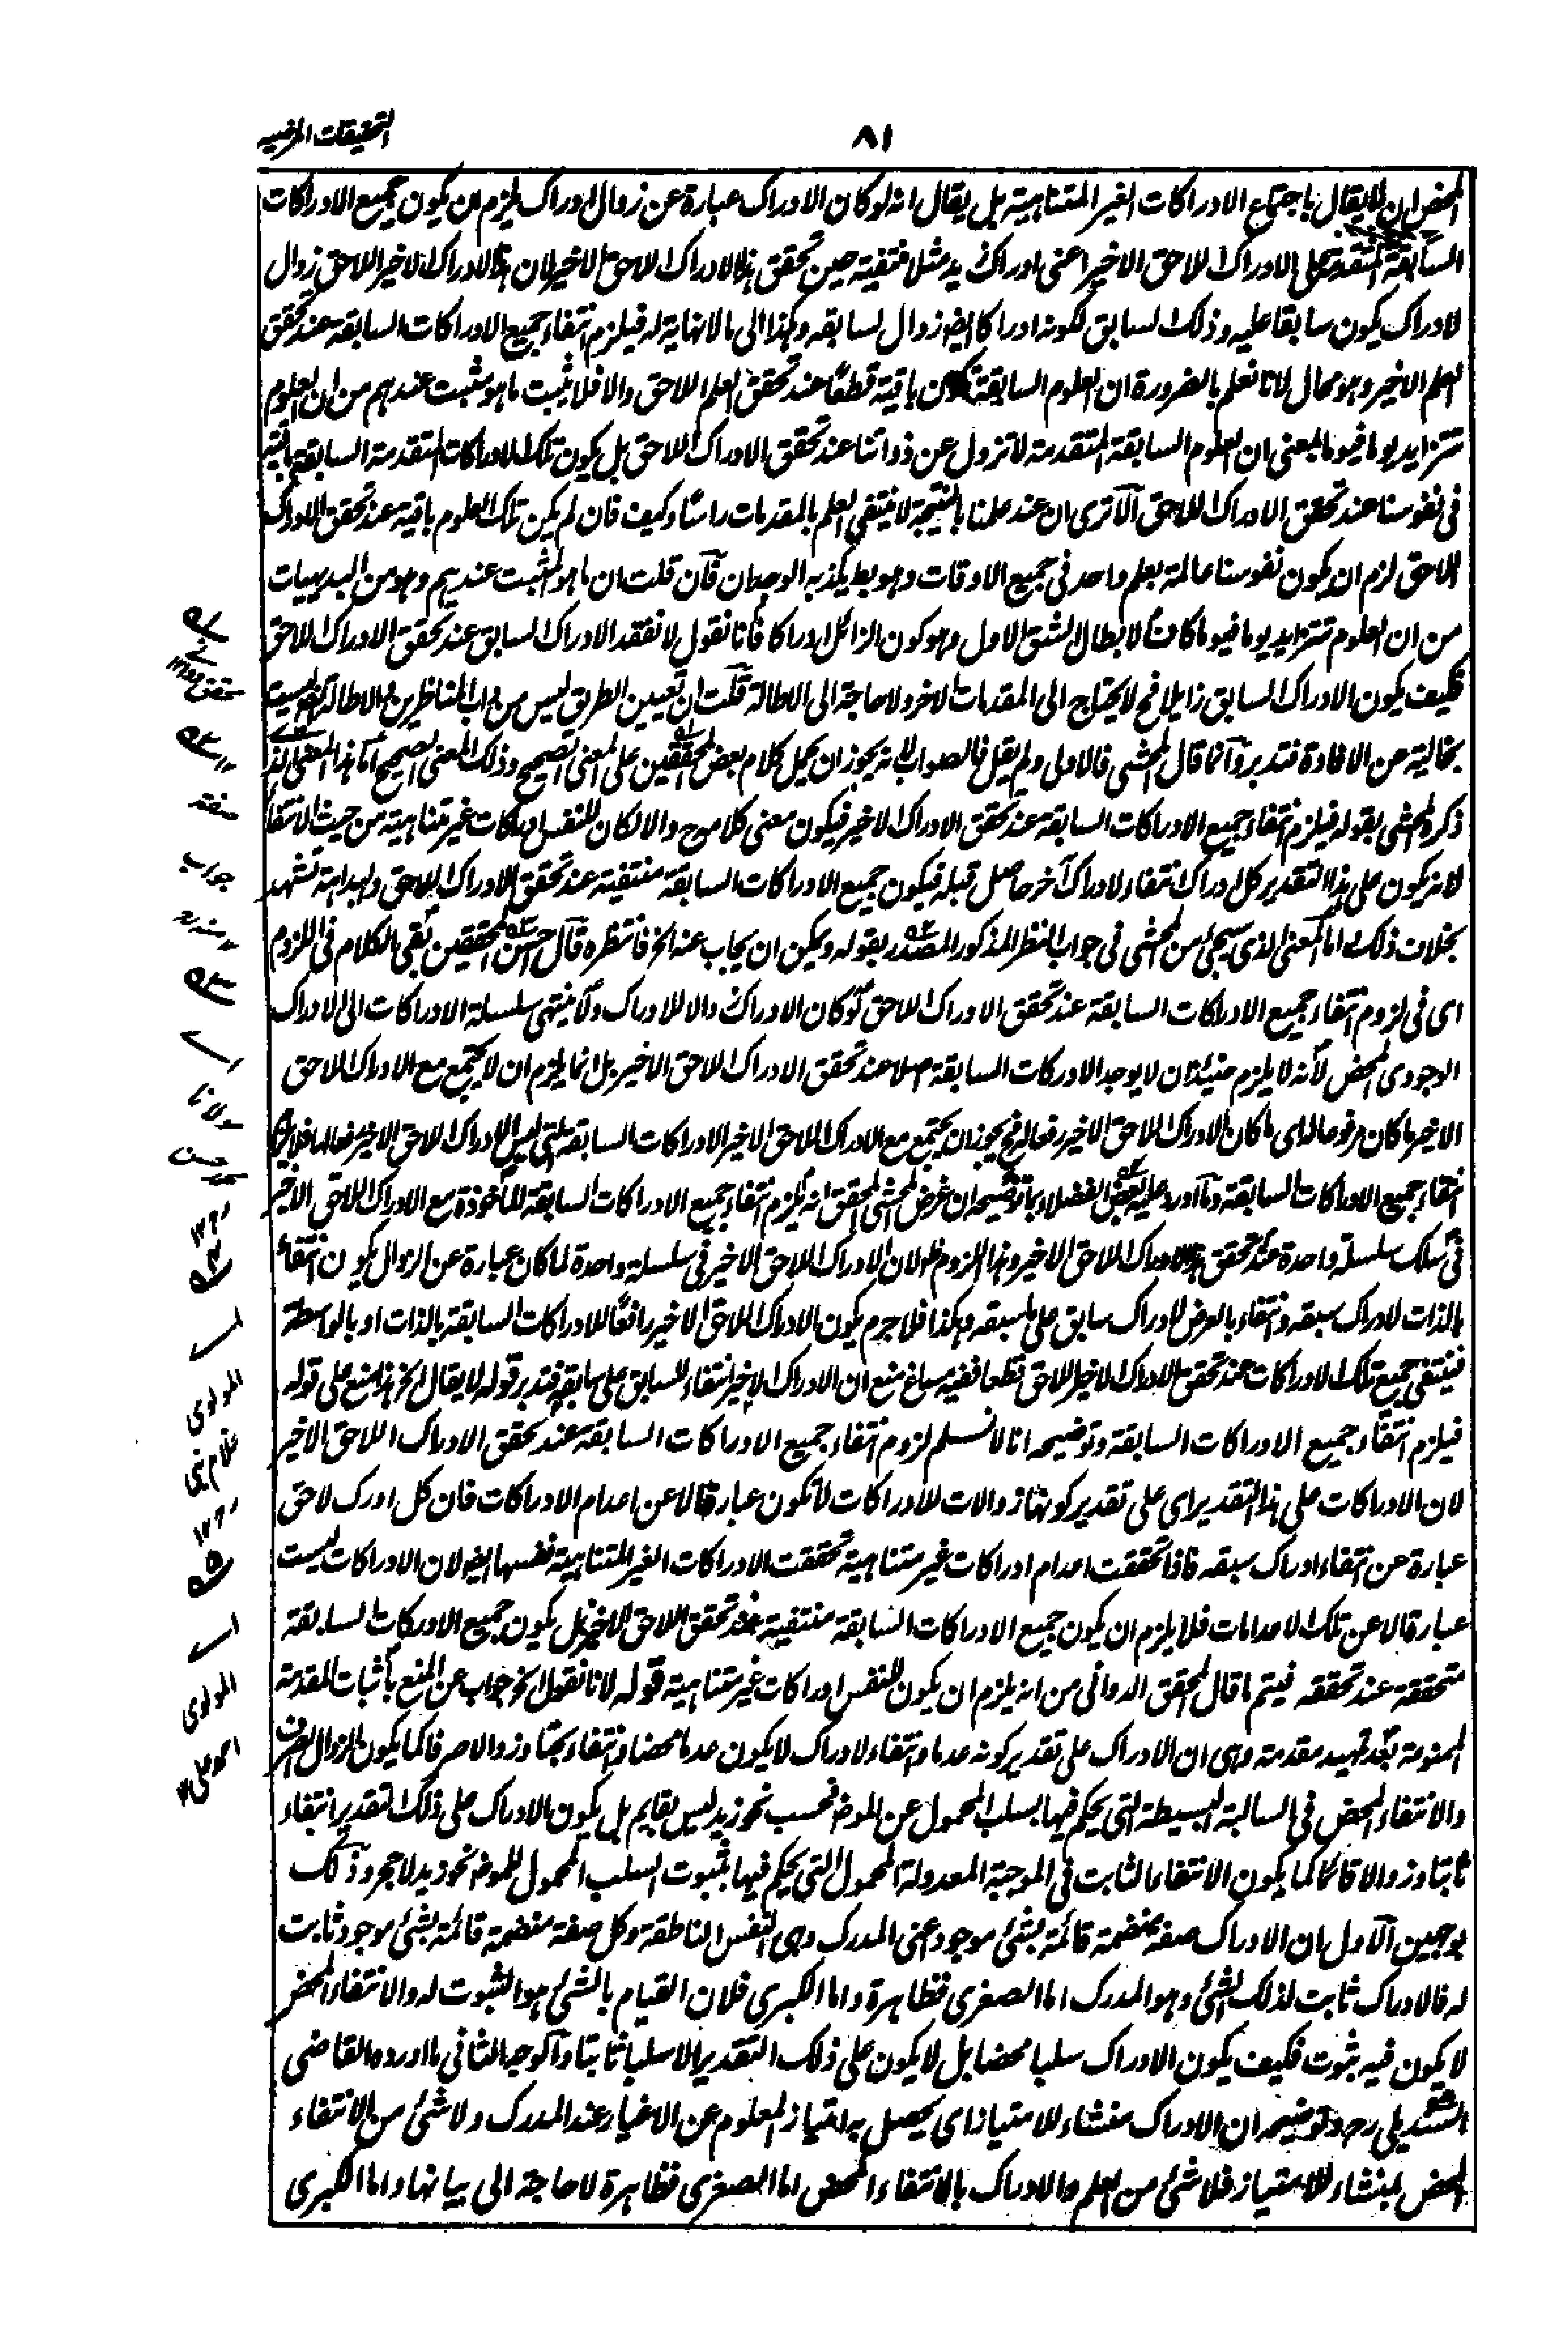 التحقيقات المرضيه
٨١
المحض ان لا يقال باجتماع الادراكات الغير المتناهية بل يقال انه لو كان الادراك عبارة عن زوال ادراك يلزم ان يكون جميع الادراكات
السابقة المتقدمة على الادراك اللاحق الاخير اعنى ادراك زيد مثلا منتفية حين تحقق هذا الادراك اللاحق الاخير لان هذا الادراك الاخير اللاحق زوال
لادراك يكون سابقا عليه وذلك السابق لكونه ادراكا ايضا زوال لسابقه وهكذا الى ما لا نهاية له فيلزم انتفاء جميع الادراكات السابقة عند تحقق
العلم الاخير وهو محال لانا نعلم بالضرورة ان العلوم السابقة تكون باقية قطعا عند تحقق العلم اللاحق والا فلا يثبت ما هو مثبت عندهم من ان العلوم
تتزايد يوما فيوما بمعنى ان العلوم السابقة المتقدمة لا تزول عن ذواتنا عند تحقق الادراك اللاحق بل يكون تلك الادراكات المتقدمة السابقة باقية
فى نفوسنا عند تحقق الادراك اللاحق الا ترى ان عند علمنا بالنتيجة لا ينتفى العلم بالمقدمات راسا وكيف فان لم يكن تلك العلوم باقية عند تحقق الادراك
اللاحق لزم ان يكون نفوسنا عالمة بعلم واحد فى جميع الاوقات وهو بط يكذبه الوجدان فان قلت ان ما هو المثبت عندهم وهو من البديهيات
من ان العلوم تتزايد يوما فيوما كاف لابطال الشق الاول وهو كون الزائل ادراكا فانا نقول لا نفقد الادراك السابق عند تحقق الادراك اللاحق
فكيف يكون الادراك السابق زايلا فح لا يحتاج الى المقدمات الاخر ولا حاجة الى الاطالة قلت ان تعيين الطريق ليس من داب المناظرين والاطالة ليست
بخالية عن الافادة فتدبر وانما قال المحشى فالاولى ولم يقل فالصواب لانه يجوز ان يحمل كلام بعض المحققين على المعنى الصحيح وذلك المعنى الصحيح اما هذا المعنى الذى
ذكره المحشى بقوله فيلزم انتفاء جميع الادراكات السابقة عند تحقق الادراك الاخير فيكون معنى كلامه ح والا لكان للنفس ادراكات غير متناهية من حيث الانتفاء
لانه يكون على هذا التقدير كل ادراك انتفاء لادراك آخر حاصل قبله فيكون جميع الادراكات السابقة منتفية عند تحقق الادراك اللاحق والبداهة تشهد
بخلاف ذلك واما المعنى الذى سيجئ من المحشى فى جواب النظر المذكور المصدر بقوله ويمكن ان يجاب عنه الخ فانتظره قال حسن المحققين بقى الكلام فى اللزوم
اى فى لزوم انتفاء جميع الادراكات السابقة عند تحقق الادراك اللاحق لو كان الادراك زوالا للادراك ولا ينتهى سلسلة الادراكات الى الادراك
الوجودى المحض لانه لا يلزم حينئذ ان لا يوجد الادراكات السابقة اصلا عند تحقق الادراك اللاحق الاخير بل انما يلزم ان لا يجتمع مع الادراك اللاحق
الاخير ما كان مرفوعا له اى ما كان الادراك اللاحق الاخير رفعا له فح يجوز ان يجتمع مع الادراك اللاحق الاخير الادراكات السابقة التى ليس الادراك اللاحق الاخير رفعا لها فلا يلزم
انتفاء جميع الادراكات السابقة وما اورد عليه بعض الفضلاء بما توضيحه ان غرض المحشى المحقق انه يلزم انتفاء جميع الادراكات السابقة الماخوذة مع الادراك اللاحق الاخير
فى سلك سلسلة واحدة عند تحقق الادراك اللاحق الاخير وهذا اللزوم ظ لان الادراك اللاحق الاخير فى سلسلة واحدة لما كان عبارة عن الزوال يكون انتفاء
بالذات لادراك سبقه وانتفاء بالعرض لادراك سابق على ما سبقه وهكذا فلا جرم يكون الادراك اللاحق الاخير رافعا للادراكات السابقة بالذات او بالواسطة
فينتفى جميع تلك الادراكات عند تحقق الادراك الاخير اللاحق قطعا ففيه مساغ منع ان الادراك الاخير انتفاء للسابق على سابقه فتدبر قوله لا يقال الخ هذا منع على قوله
فيلزم انتفاء جميع الادراكات السابقة وتوضيحه انا لا نسلم لزوم انتفاء جميع الادراكات السابقة عند تحقق الادراك اللاحق الاخير
لان الادراكات على هذا التقدير اى على تقدير كونها زوالات للادراكات لا تكون عبارة الا عن اعدام الادراكات فان كل ادراك لاحق
عبارة عن انتفاء ادراك سبقه فاذا تحققت اعدام ادراكات غير متناهية تحققت الادراكات الغير المتناهية نفسها ايضا لان الادراكات ليست
عبارة الا عن تلك الاعدامات فلا يلزم ان يكون جميع الادراكات السابقة منتفية عند تحقق اللاحق الاخير بل يكون جميع الادراكات السابقة
متحققة عند تحققه فيتم ما قال المحقق الدوانى من انه يلزم ان يكون للنفس ادراكات غير متناهية قوله لانا نقول الخ جواب عن المنع باثبات المقدمة
الممنوعة بعد تمهيد مقدمة وهى ان الادراك على تقدير كونه عدما وانتفاء لادراك لا يكون عدما محضا وانتفاء بحتا وزوالا صرفا كما يكون الزوال الصرف
والانتفاء المحض فى السالبة البسيطة التى يحكم فيها بسلب المحمول عن الموضوع فحسب نحو زيد ليس بقايم بل يكون الادراك على ذلك التقدير انتفاء
ثابتا وزوالا قائما كما يكون الانتفاء الثابت فى الموجبة المعدولة المحمول التى يحكم فيها بثبوت السلب المحمول للموضوع نحو زيد لا حجر وذلك
بوجهين الاول ان الادراك صفة منضمة قائمة بشئ موجود اعنى المدرك وهى النفس الناطقة وكل صفة منضمة قائمة بشئ موجود ثابت
له فالادراك ثابت لذلك الشئ وهو المدرك اما الصغرى فظاهرة واما الكبرى فلان القيام بالشئ هو الثبوت له والانتفاء المحض
لا يكون فيه ثبوت فكيف يكون الادراك سلبا محضا بل لا يكون على ذلك التقدير الا سلبا ثابتا والوجه الثانى ما اورده القاضى
السنديلى رح وتوضيحه ان الادراك منشاء للامتياز اى يحصل به امتياز المعلوم عن الاغيار عند المدرك ولا شئ من الانتفاء
المحض بمنشاء للامتياز فلا شئ من العلم والادراك بالانتفاء المحض اما الصغرى فظاهرة لا حاجة الى بيانها واما الكبرى
جواب
مولانا
حسن
اى
المولوى
غلام نجى
اى
المولوى
احمد على